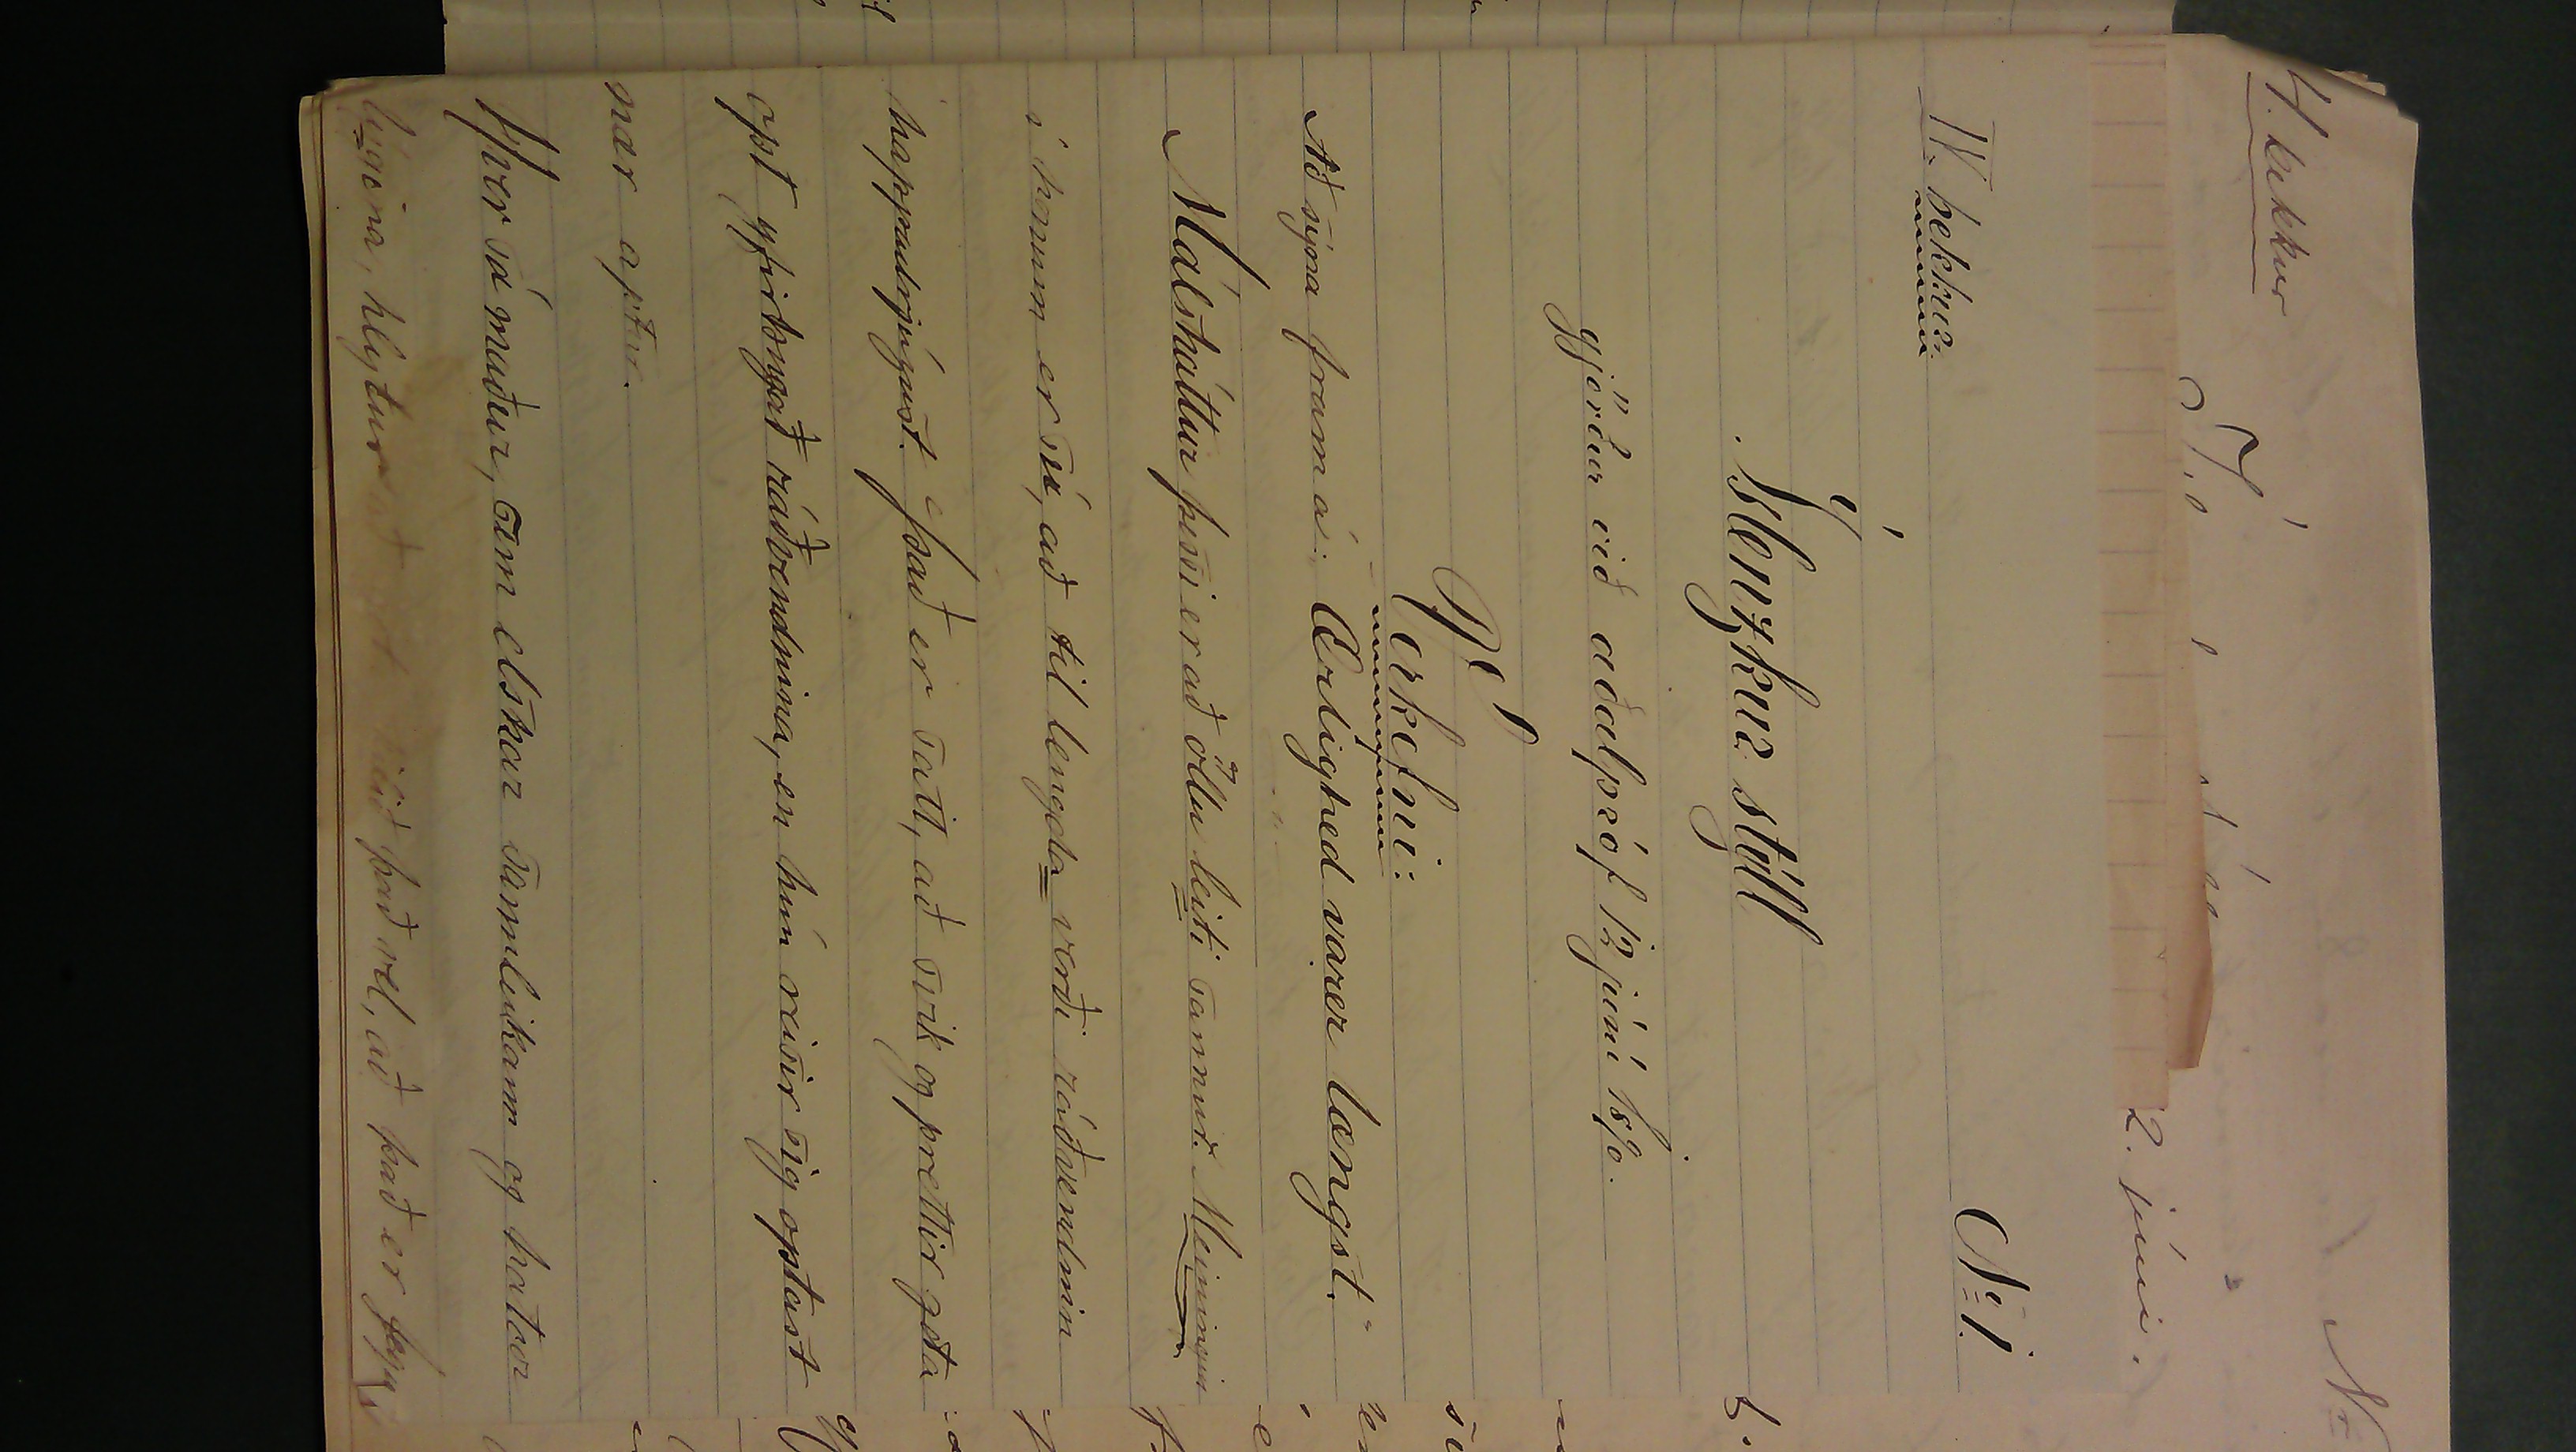 4. bekkur
2. júní.
IV. bekkur.
No 1.
Íslenzkur stýll
gjörður við aðalpróf 12 júní 18
Verkefni:
Að sýna fram á: "Ærlighed varer længst."
Málsháttur þessi er að öllu leiti sannur. Meiningin
í honum er sú, að til lengda verði ráðvendnin
happadrjúgust. Það er satt, að svik og prettir geta
opt yfirbugað ráðvendnina, en hún reisir sig optast
nær aptur.
Hver sá maður, sem elskar sannleikann og hatar
lygina, hlýtur að það vel, að það er